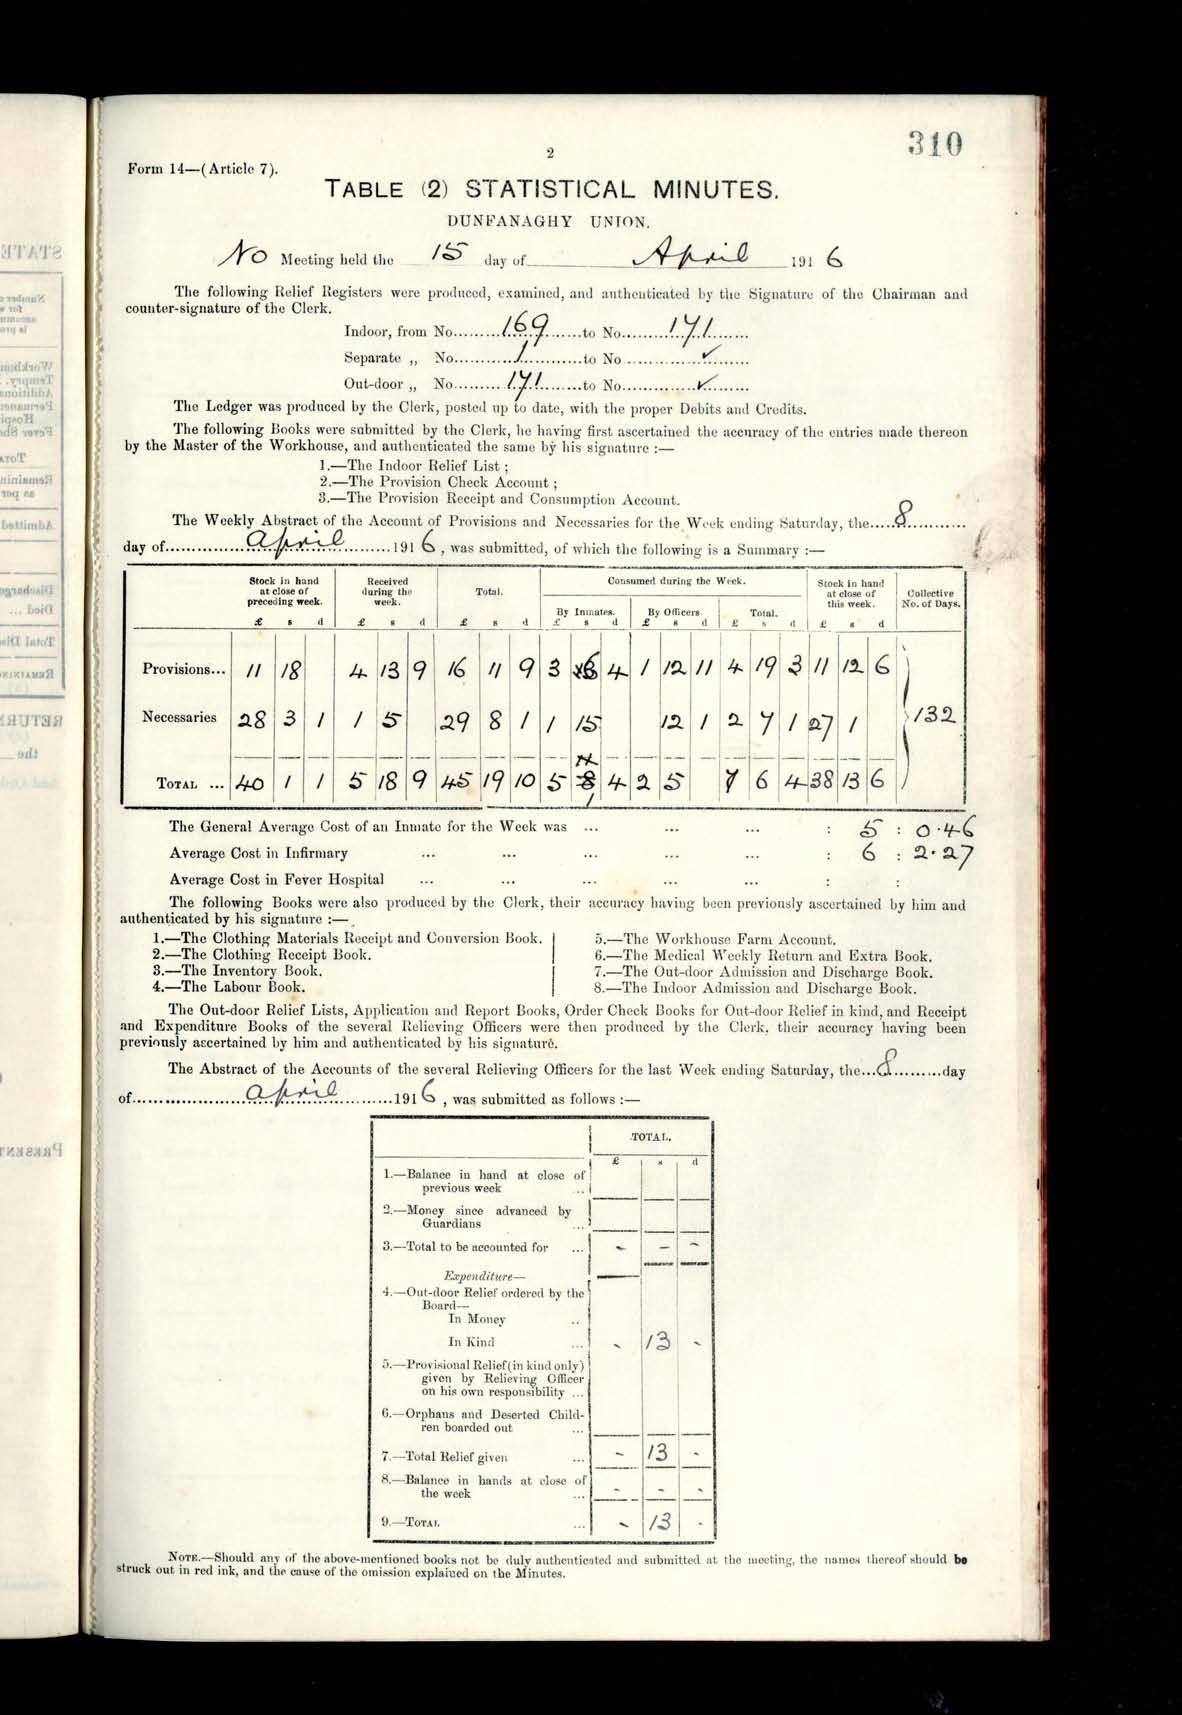 310
2
Form 14—(Article 7).
TABLE (2) STATISTICAL MINUTES.
DUNFANAGHY UNION.
No Meeting held the 15 day of April 1916
The following Relief Registers were produced, examined, and authenticated by the Signature of the Chairman and
counter-signature of the Clerk.
Indoor, from No. 169 to No. 171
Separate „ No. 1 to No. ✓
Out-door „ No. 171 to No. ✓
The Ledger was produced by the Clerk, posted up to date, with the proper Debits and Credits.
The following Books were submitted by the Clerk, he having first ascertained the accuracy of the entries made thereon
by the Master of the Workhouse, and authenticated the same by his signature :—
1.—The Indoor Relief List ;
2.—The Provision Check Account ;
3.—The Provision Receipt and Consumption Account.
The Weekly Abstract of the Account of Provisions and Necessaries for the Week ending Saturday, the 8
day of April 1916, was submitted, of which the following is a Summary :—
Stock in hand at close of preceding week. Received during the week. Total. Consumed during the Week. Stock in hand at close of this week. Collective No. of Days.
By Inmates. By Officers. Total.
£ s d £ s d £ s d £ s d £ s d £ s d £ s d
Provisions... 11 18 4 13 9 16 11 9 3 6 4 1 12 11 4 19 3 11 12 6
Necessaries 28 3 1 1 5 29 8 1 1 15 12 1 2 7 1 27 1 132
TOTAL ... 40 1 1 5 18 9 45 19 10 5 1 4 2 5 7 6 4 38 13 6
The General Average Cost of an Inmate for the Week was ... ... ... : 5 : 0·46
Average Cost in Infirmary ... ... ... ... ... : 6 : 2·27
Average Cost in Fever Hospital ... ... ... ... ... : :
The following Books were also produced by the Clerk, their accuracy having been previously ascertained by him and
authenticated by his signature :—
1.—The Clothing Materials Receipt and Conversion Book.
2.—The Clothing Receipt Book.
3.—The Inventory Book.
4.—The Labour Book.
5.—The Workhouse Farm Account.
6.—The Medical Weekly Return and Extra Book.
7.—The Out-door Admission and Discharge Book.
8.—The Indoor Admission and Discharge Book.
The Out-door Relief Lists, Application and Report Books, Order Check Books for Out-door Relief in kind, and Receipt
and Expenditure Books of the several Relieving Officers were then produced by the Clerk, their accuracy having been
previously ascertained by him and authenticated by his signature.
The Abstract of the Accounts of the several Relieving Officers for the last Week ending Saturday, the 8 day
of April 1916, was submitted as follows :—
TOTAL.
£ s d
1.—Balance in hand at close of
previous week ...
2.—Money since advanced by
Guardians ...
3.—Total to be accounted for ... - - -
Expenditure—
4.—Out-door Relief ordered by the
Board—
In Money ..
In Kind ... - 13 -
5.—Provisional Relief (in kind only)
given by Relieving Officer
on his own responsibility ...
6.—Orphans and Deserted Child-
ren boarded out ...
7.—Total Relief given ... - 13 -
8.—Balance in hands at close of
the week ... - - -
9.—TOTAL ... - 13 -
NOTE.—Should any of the above-mentioned books not be duly authenticated and submitted at the meeting, the names thereof should be
struck out in red ink, and the cause of the omission explained on the Minutes.